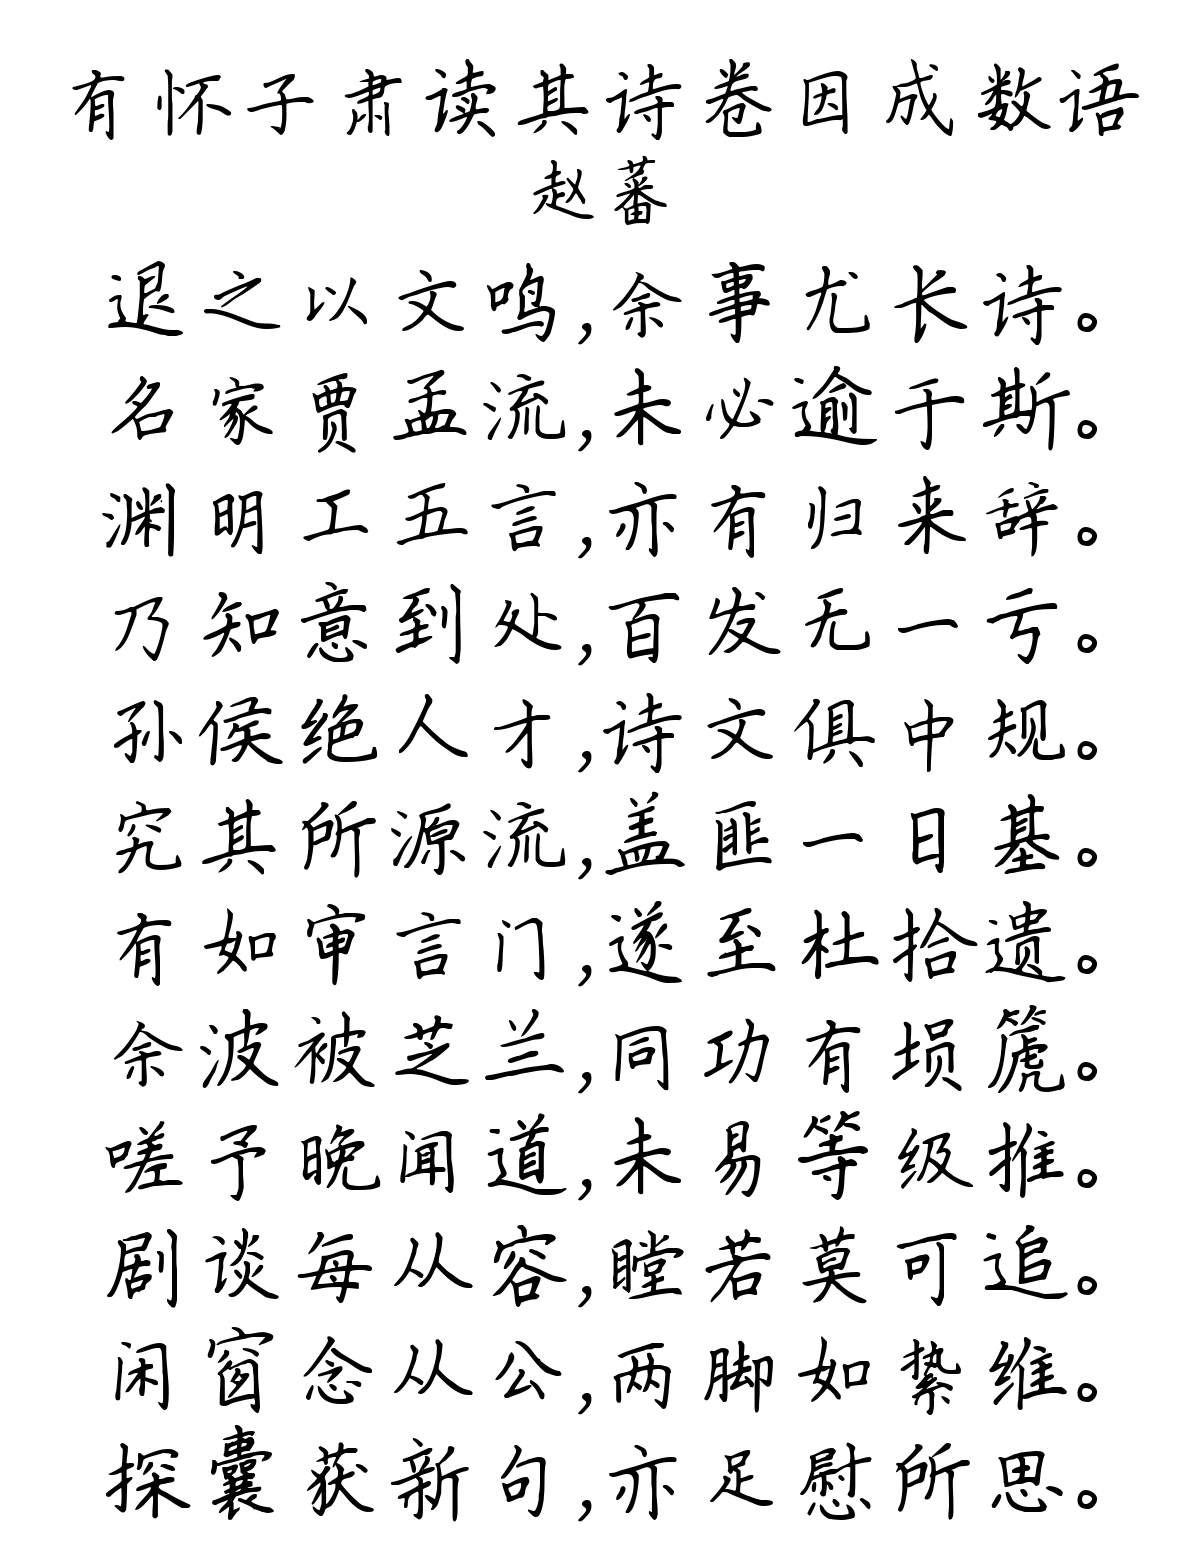 有怀子肃读其诗卷因成数语
赵蕃
退之以文鸣,余事尤长诗。
名家贾孟流,未必逾于斯。
渊明工五言,亦有归来辞。
乃知意到处,百发无一亏。
孙侯绝人才,诗文俱中规。
究其所源流,盖匪一日基。
有如审言门,遂至杜拾遗。
余波被芝兰,同功有埙篪。
嗟予晚闻道,未易等级推。
剧谈每从容,瞠若莫可追。
闲窗念从公,两脚如絷维。
探囊获新句,亦足慰所思。